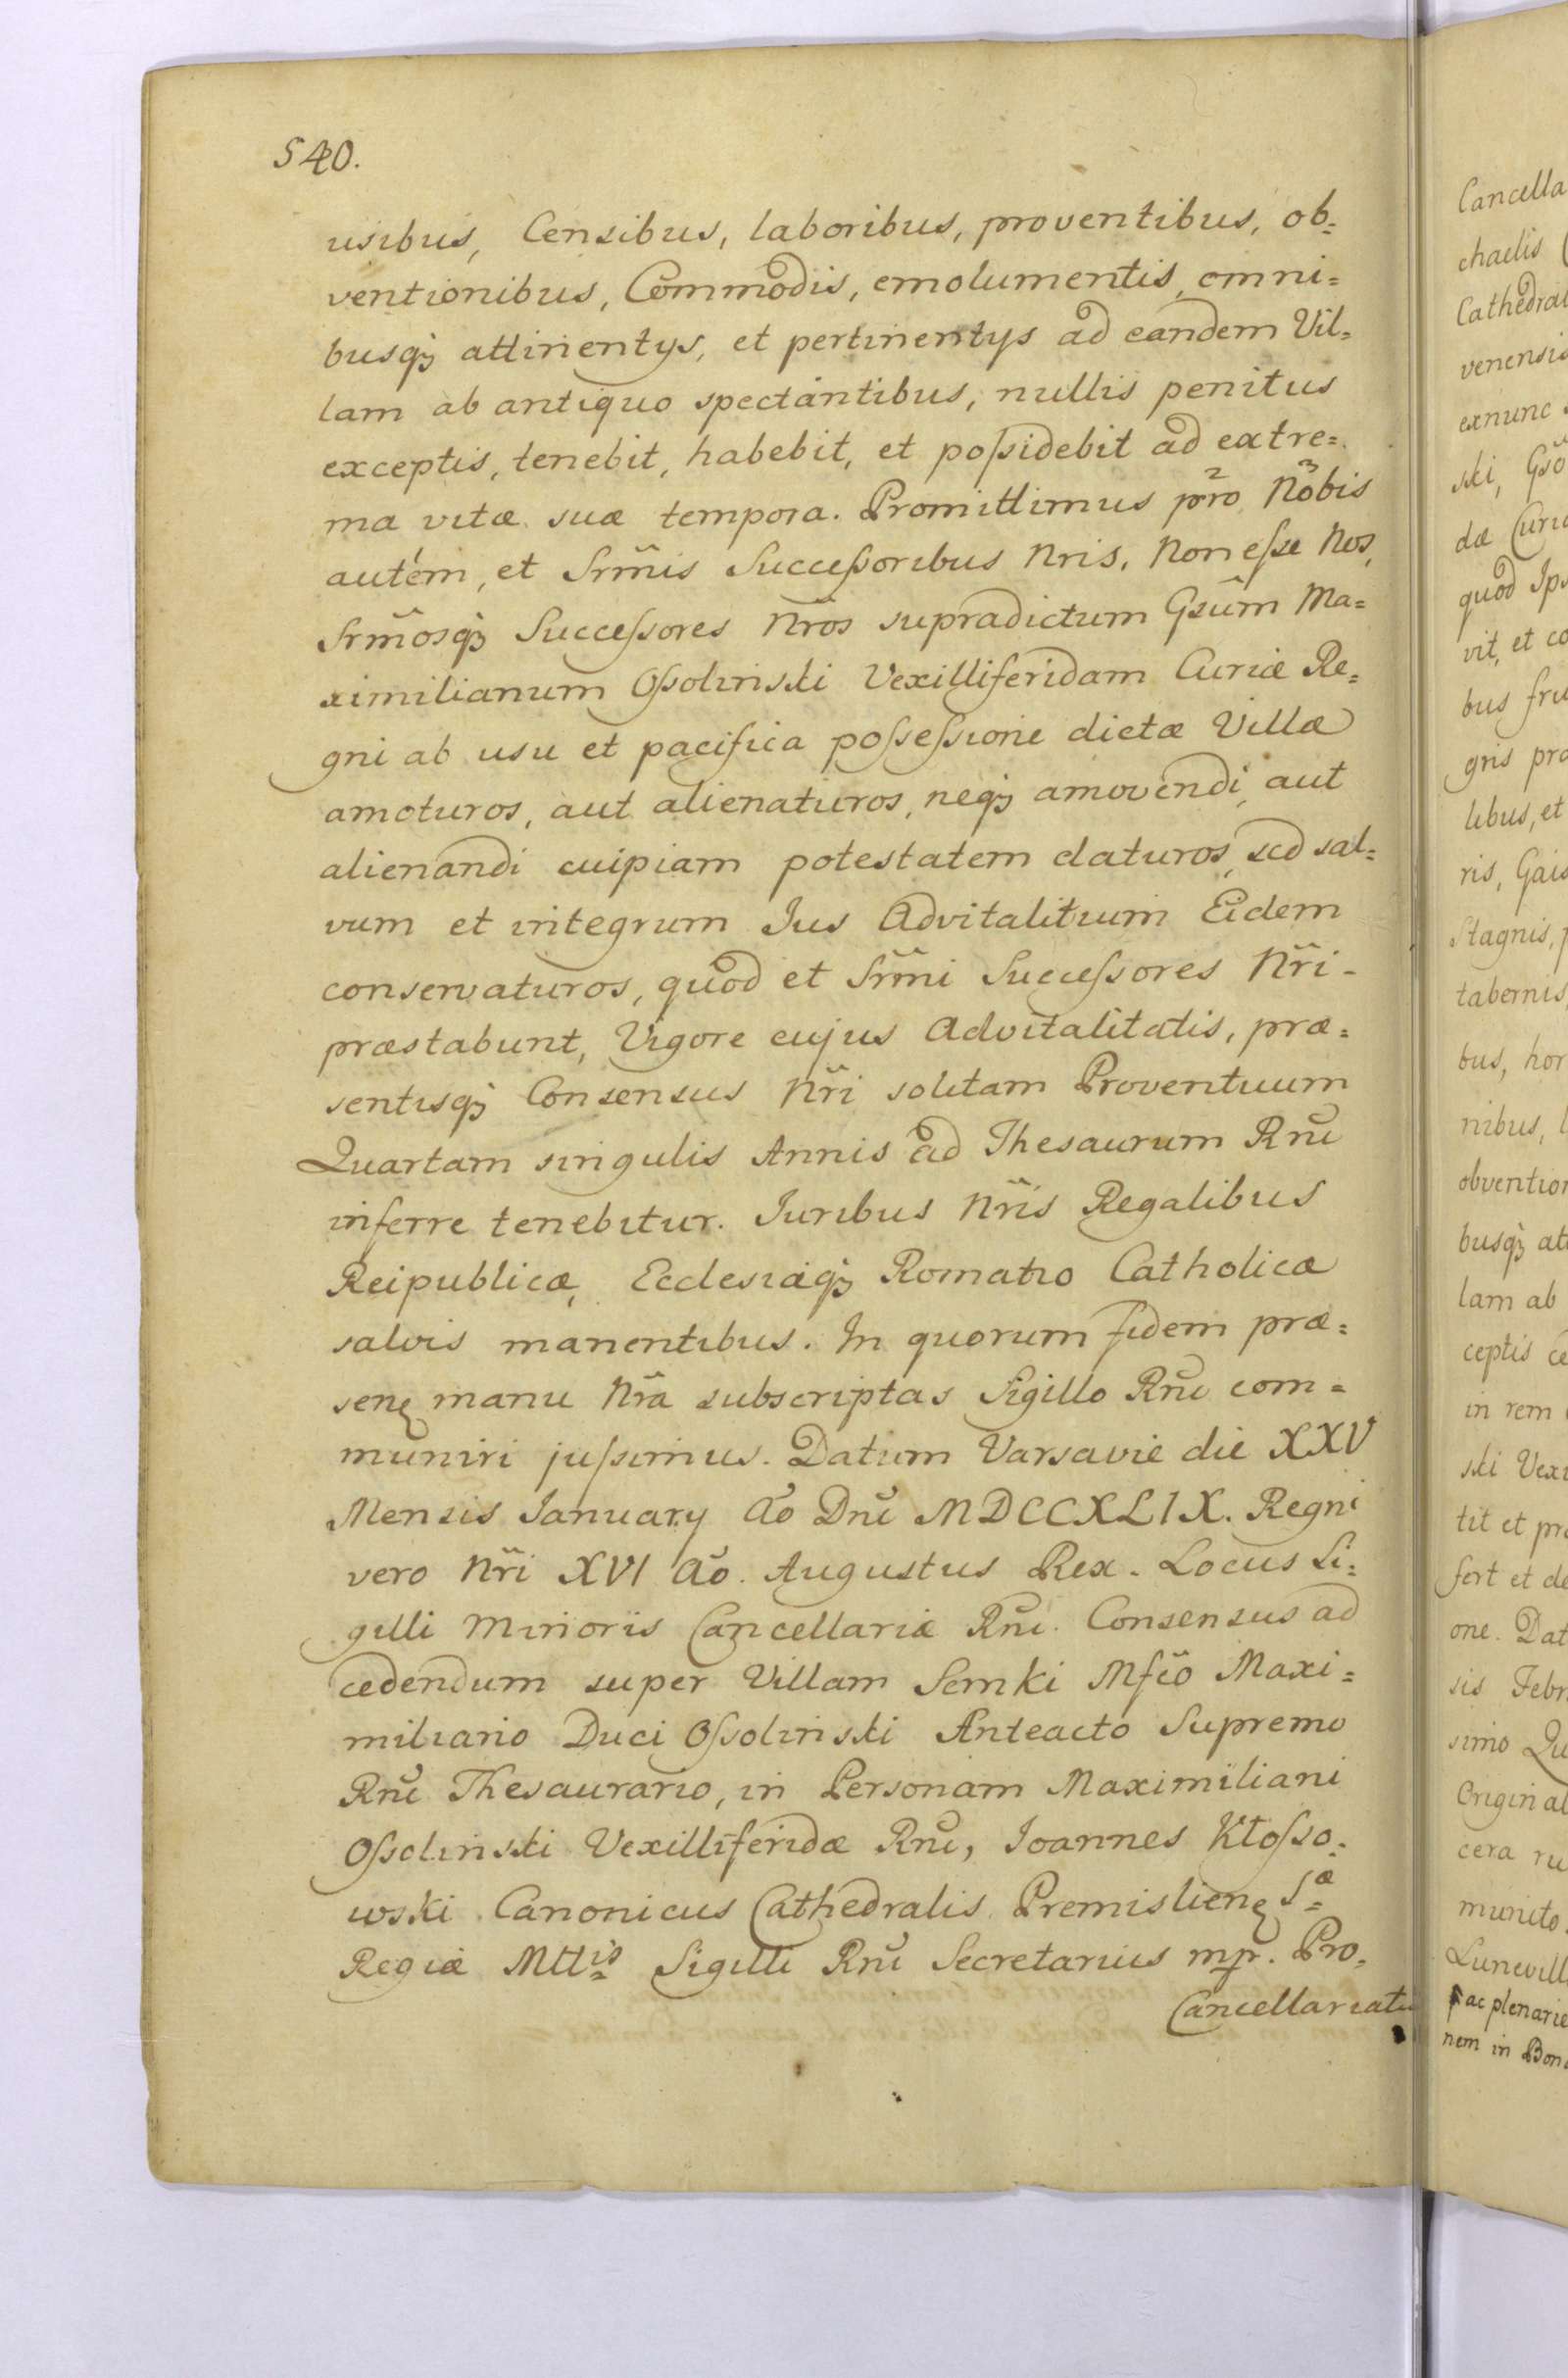 540.
usibus, Censibus, laboribus, proventibus, ob=
ventionibus, Com̃modis, emolumentis, omni=
busqꝫ attinentys, et pertinentys ad eandem Vil=
lam ab antiquo spectantibus, nullis penitus
exceptis, tenebit, habebit, et poſsidebit ad extre=
ma vitæ suæ tempora. Promittimus pro 2 Nobis 3
autem, et Srm̃is Succeſsoribus Nris, Non eſse Nos,
Srm̃osqꝫ Succeſsores Nr̃os supradictum Gsũm Ma=
ximilianum Oſsolinski Vexilliferidam Curiæ Re=
gni ab usu et pacifica poſseſsione dictæ Villæ
amoturos, aut alienaturos, neqꝫ amovendi, aut
alienandi cuipiam potestatem daturos, sed sal=
vum et integrum Jus Advitalitium Eidem
conservaturos, quod et Srm̃i Succeſsores Nr̃i
præstabunt, Vigore cujus Advitalitatis, præ=
sentisqꝫ Consensus Nr̃i solitam Proventuum
Quartam singulis Annis ad Thesaurum Rnĩ
inferre tenebitur. Juribus Nr̃is Regalibus
Reipublicæ, Ecclesiæqꝫ Romano Catholicæ
salvis manentibus. In quorum fidem præ=
senꝫ manu Nr̃a subscriptas Sigillo Rnĩ com=
muniri juſsimus. Datum Varsavie die XXV
Mensis January Aõ Dnĩ MDCCXLIX. Regni
vero Nr̃i XVI Aõ. Augustus Rex. Locus Si=
gilli Minoris Cancellariæ Rnĩ. Consensus ad
cedendum super Villam Semki Mfc̃o Maxi=
miliano Duci Oſsolinski Anteacto Supremo
Rnĩ Thesaurario, in Personam Maximiliani
Oſsolinski Vexilliferidæ Rnĩ, Joannes Kłoſso=
wski Canonicus Cathedralis Premislienꝫ Sæ
Regiæ Mttis Sigilli Rnĩ Secretarius mpr. Pro=
Cancellariatu
Cancella
chaelis
Cathedral
venensis
exnunc
ski, Gso
dæ Curi
quod Ips
vit, et co
bus fru
gris pra
libus, et
ris, Gais
Stagnis, p
tabernis,
bus, hor
nibus, l
obvention
busqꝫ at
lam ab
ceptis ce
in rem
ski Vexi
tit et pr
fert et de
one. Dat
sis Febr
simo Qu
Original
cera ru
munito.
Lunevill
ac plenarie
nem in Bon